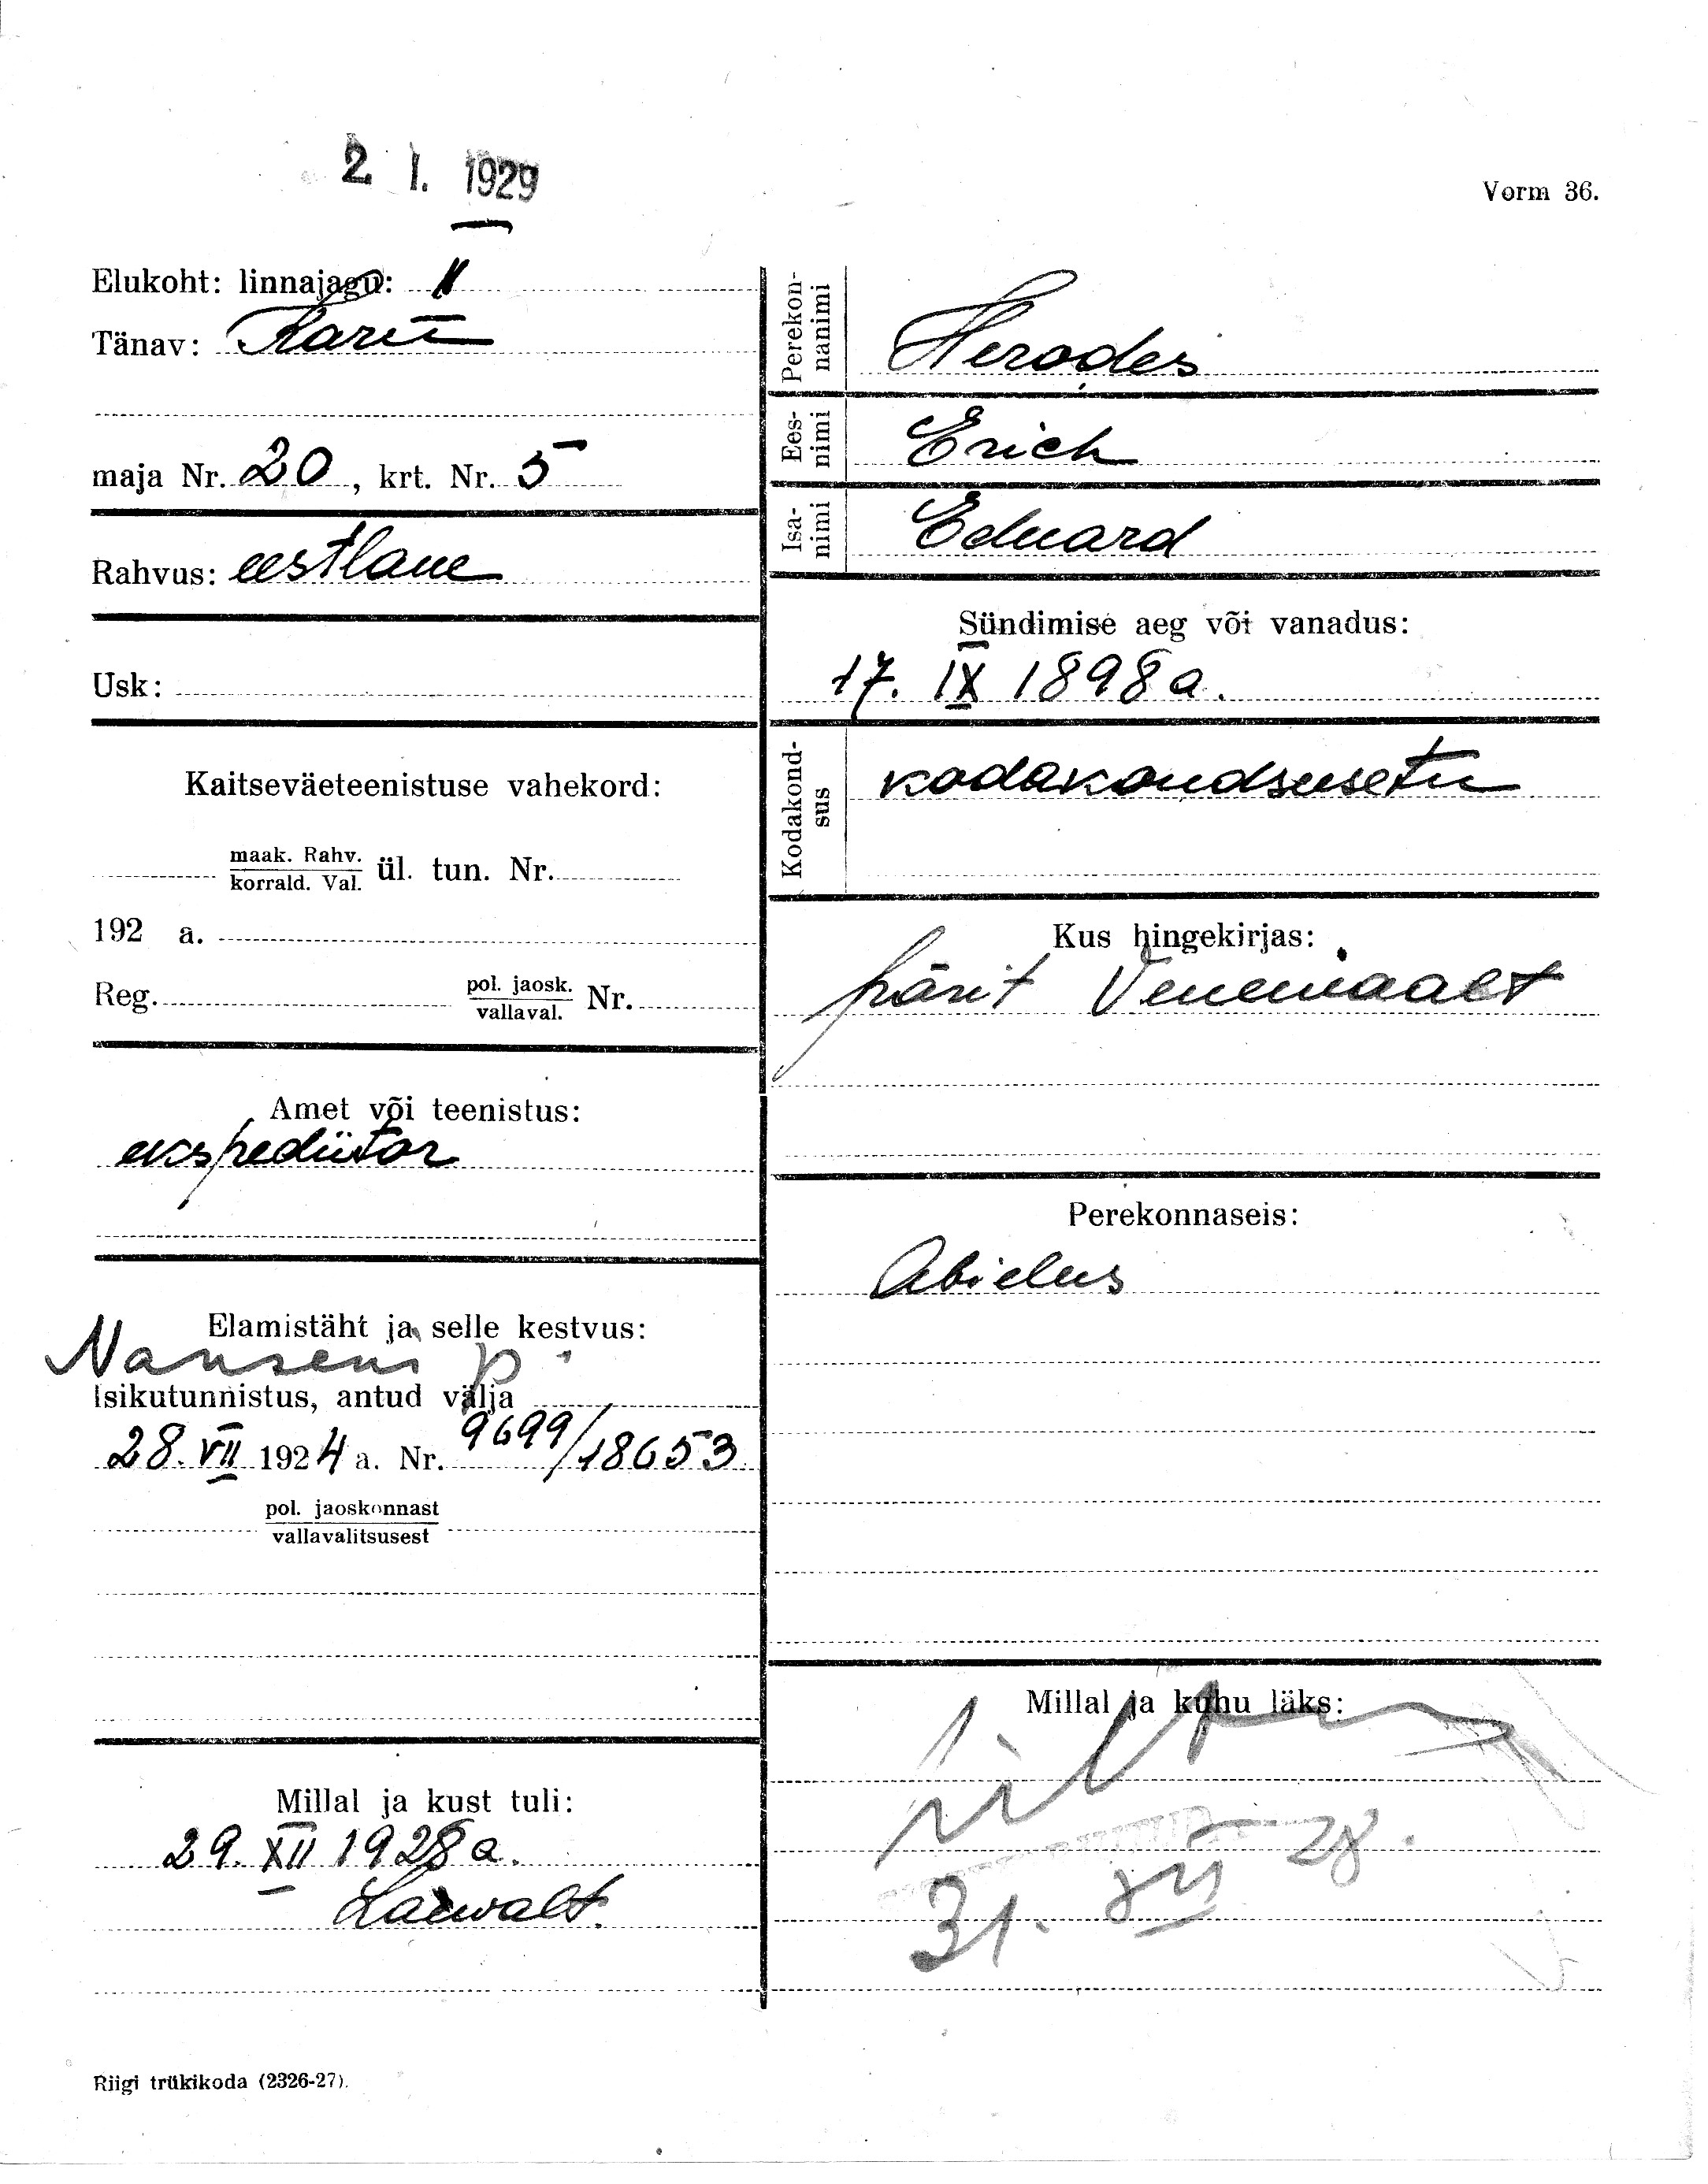 2. I. 1929
Vorm 36.
Elukoht: linnajagu: II
Tänav: Karu
maja Nr. 20, krt. Nr. 5
Rahvus: eestlane
Usk:
Kaitseväeteenistuse vahekord:
maak. Rahv.
korrald. Val. ül. tun. Nr.
192 a.
Reg. pol. jaosk.
vallaval. Nr.
Amet või teenistus:
ekspediitor
Elamistäht ja selle kestvus:
Nanseni p.
Isikutunnistus, antud välja
28. VII 1924 a. Nr. 9699/18653
pol. jaoskonnast
vallavalitsusest
Millal ja kust tuli:
29. XII 1928 a.
Perekon-
nanimi
Herodes
Ees-
nimi
Erich
Isa-
nimi
Eduard
Sündimise aeg või vanadus:
17. IX 1898 a.
Kodakond-
sus
kodakondsusetu
Kus hingekirjas:
pärit Venemaalt
Perekonnaseis:
Abielus
Millal ja kuhu läks:
31. XII 28.
Riigi trükikoda (2326-27).